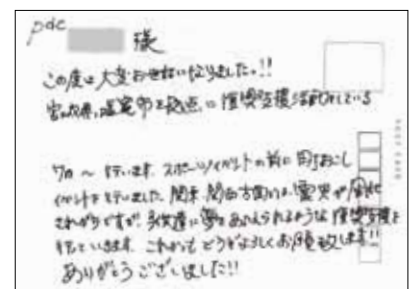 pdc 様
この度は大変お世話になりました。!!
宮城県、塩竈市を拠点に復興支援活動をしている
7カ 〜 行います。スポーツイベントの前に 町おこし
イベントを行いました。関東 関西方面では 震災が風化
されがちですが、子供達に夢をあたえられるような 復興支援を
行っています。これからもどうぞよろしくお願い致します!!
ありがとうございました!!